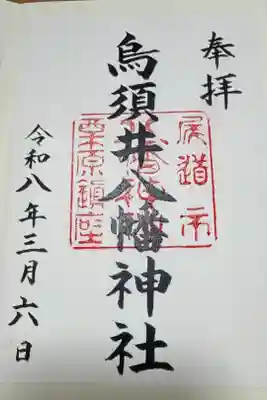 奉拝
尾道市
烏須井八幡神社
栗原鎮座
令和八年三月六日